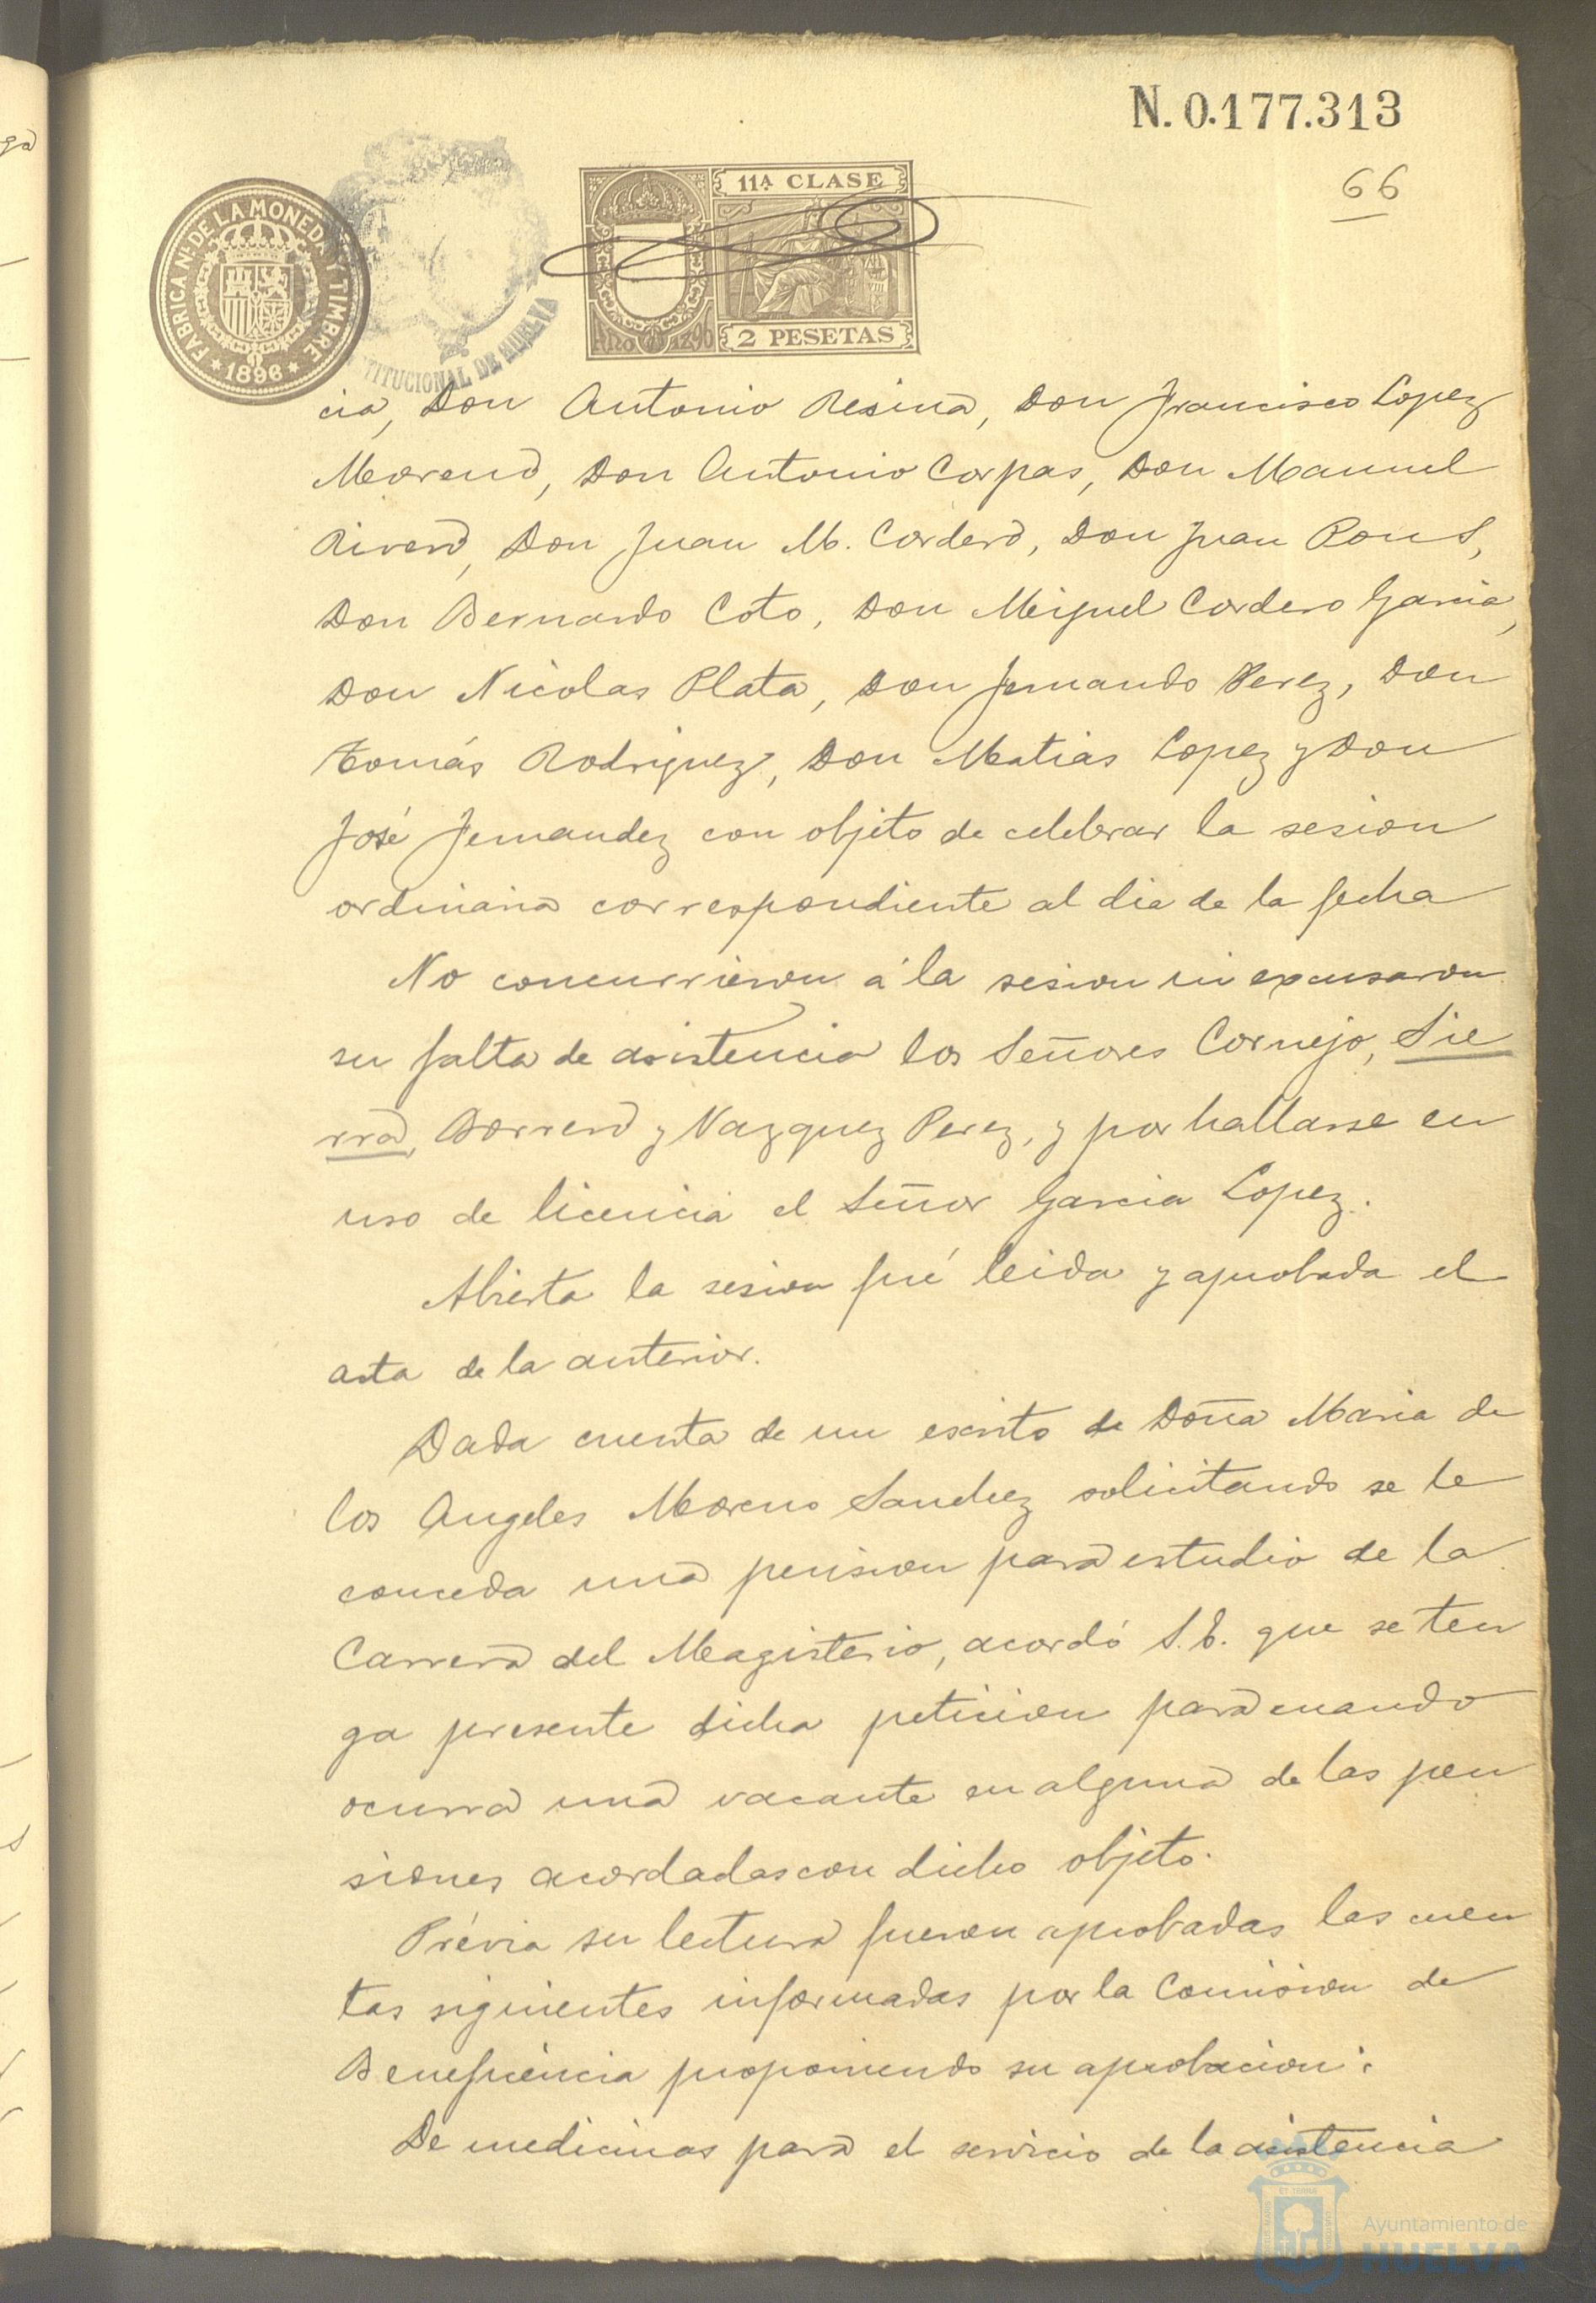 N. 0.177.313
66
FABRICA NL. DE LA MONEDA Y TIMBRE
* 1896 *
TITUCIONAL DE HUELVA
11A CLASE
Año 1896
2 PESETAS
cia, Don Antonio Resina, Don Francisco Lopez
Moreno, Don Antonio Corpas, Don Manuel
Rivero, Don Juan M. Cordero, Don Juan Rous,
Don Bernardo Coto, Don Miguel Cordero Garcia,
Don Nicolas Plata, Don Fernando Perez, Don
Tomás Rodriguez, Don Matias Lopez y Don
José Fernandez con objeto de celebrar la sesion
ordinaria correspondiente al dia de la fecha
No concurrieron á la sesion ni excusaron
su falta de asistencia los Señores Cornejo, Sie
rra, Borrero y Vazquez Perez, y por hallarse en
uso de licencia el Señor Garcia Lopez.
Abierta la sesion fué leida y aprobada el
acta de la anterior.
Dada cuenta de un escrito de Doña Maria de
los Angeles Moreno Sanchez solicitando se le
conceda una pension para estudio de la
Carrera del Magisterio, acordó S.E. que se ten
ga presente dicha peticion para cuando
ocurra una vacante en alguna de las pen
siones acordadas con dicho objeto.
Prévia su lectura fueron aprobadas las cuen
tas siguientes informadas por la Comision de
Beneficencia proponiendo su aprobacion:
De medicinas para el servicio de la asistencia
Ayuntamiento de
HUELVA